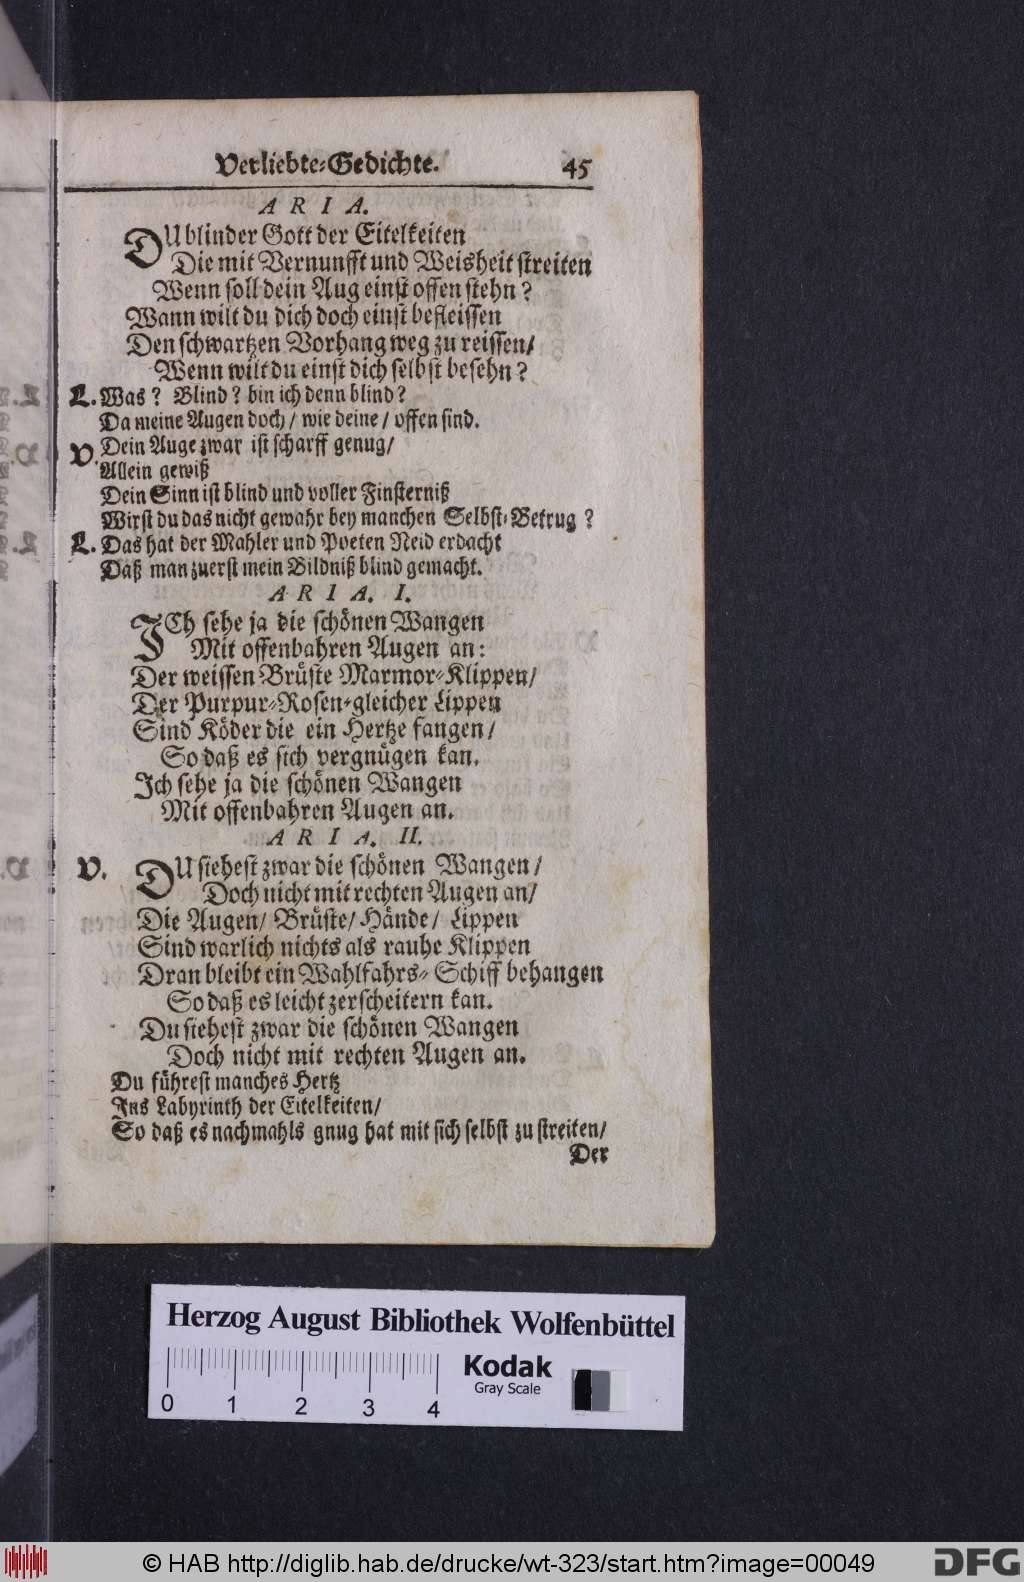 Verliebte-Gedichte. 45
ARIA.
DU blinder Gott der Eitelkeiten
Die mit Vernunfft und Weisheit streiten
Wenn soll dein Aug einst offen stehn?
Wann wilt du dich doch einst befleissen
Den schwartzen Vorhang weg zu reissen/
Wenn wilt du einst dich selbst besehn?
L. Was? Blind? bin ich denn blind?
Da meine Augen doch/ wie deine/ offen sind.
V. Dein Auge zwar ist scharff genug/
Allein gewiß
Dein Sinn ist blind und voller Finsterniß
Wirst du das nicht gewahr bey manchen Selbst-Betrug?
L. Das hat der Mahler und Poeten Neid erdacht
Daß man zuerst mein Bildniß blind gemacht.
ARIA. I.
ICh sehe ja die schönen Wangen
Mit offenbahren Augen an:
Der weissen Brüste Marmor-Klippen/
Der Purpur-Rosen-gleicher Lippen
Sind Köder die ein Hertze fangen/
So daß es sich vergnügen kan.
Ich sehe ja die schönen Wangen
Mit offenbahren Augen an.
ARIA. II.
V. DU siehest zwar die schönen Wangen/
Doch nicht mit rechten Augen an/
Die Augen/ Brüste/ Hände/ Lippen
Sind warlich nichts als rauhe Klippen
Dran bleibt ein Wahlfahrs-Schiff behangen
So daß es leicht zerscheitern kan.
Du siehest zwar die schönen Wangen
Doch nicht mit rechten Augen an.
Du führest manches Hertz
Ins Labyrinth der Eitelkeiten/
So daß es nachmahls gnug hat mit sich selbst zu streiten/
Der
Herzog August Bibliothek Wolfenbüttel
Kodak
Gray Scale
0 1 2 3 4
© HAB http://diglib.hab.de/drucke/wt-323/start.htm?image=00049
DFG